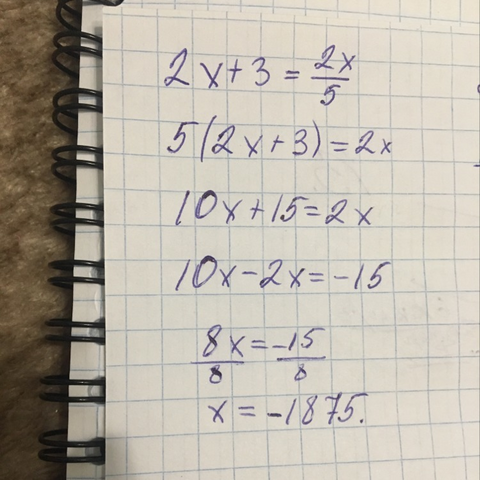 2x+3=2x/5
5(2x+3)=2x
10x+15=2x
10x-2x=-15
8x/8=-15/8
x=-1875.